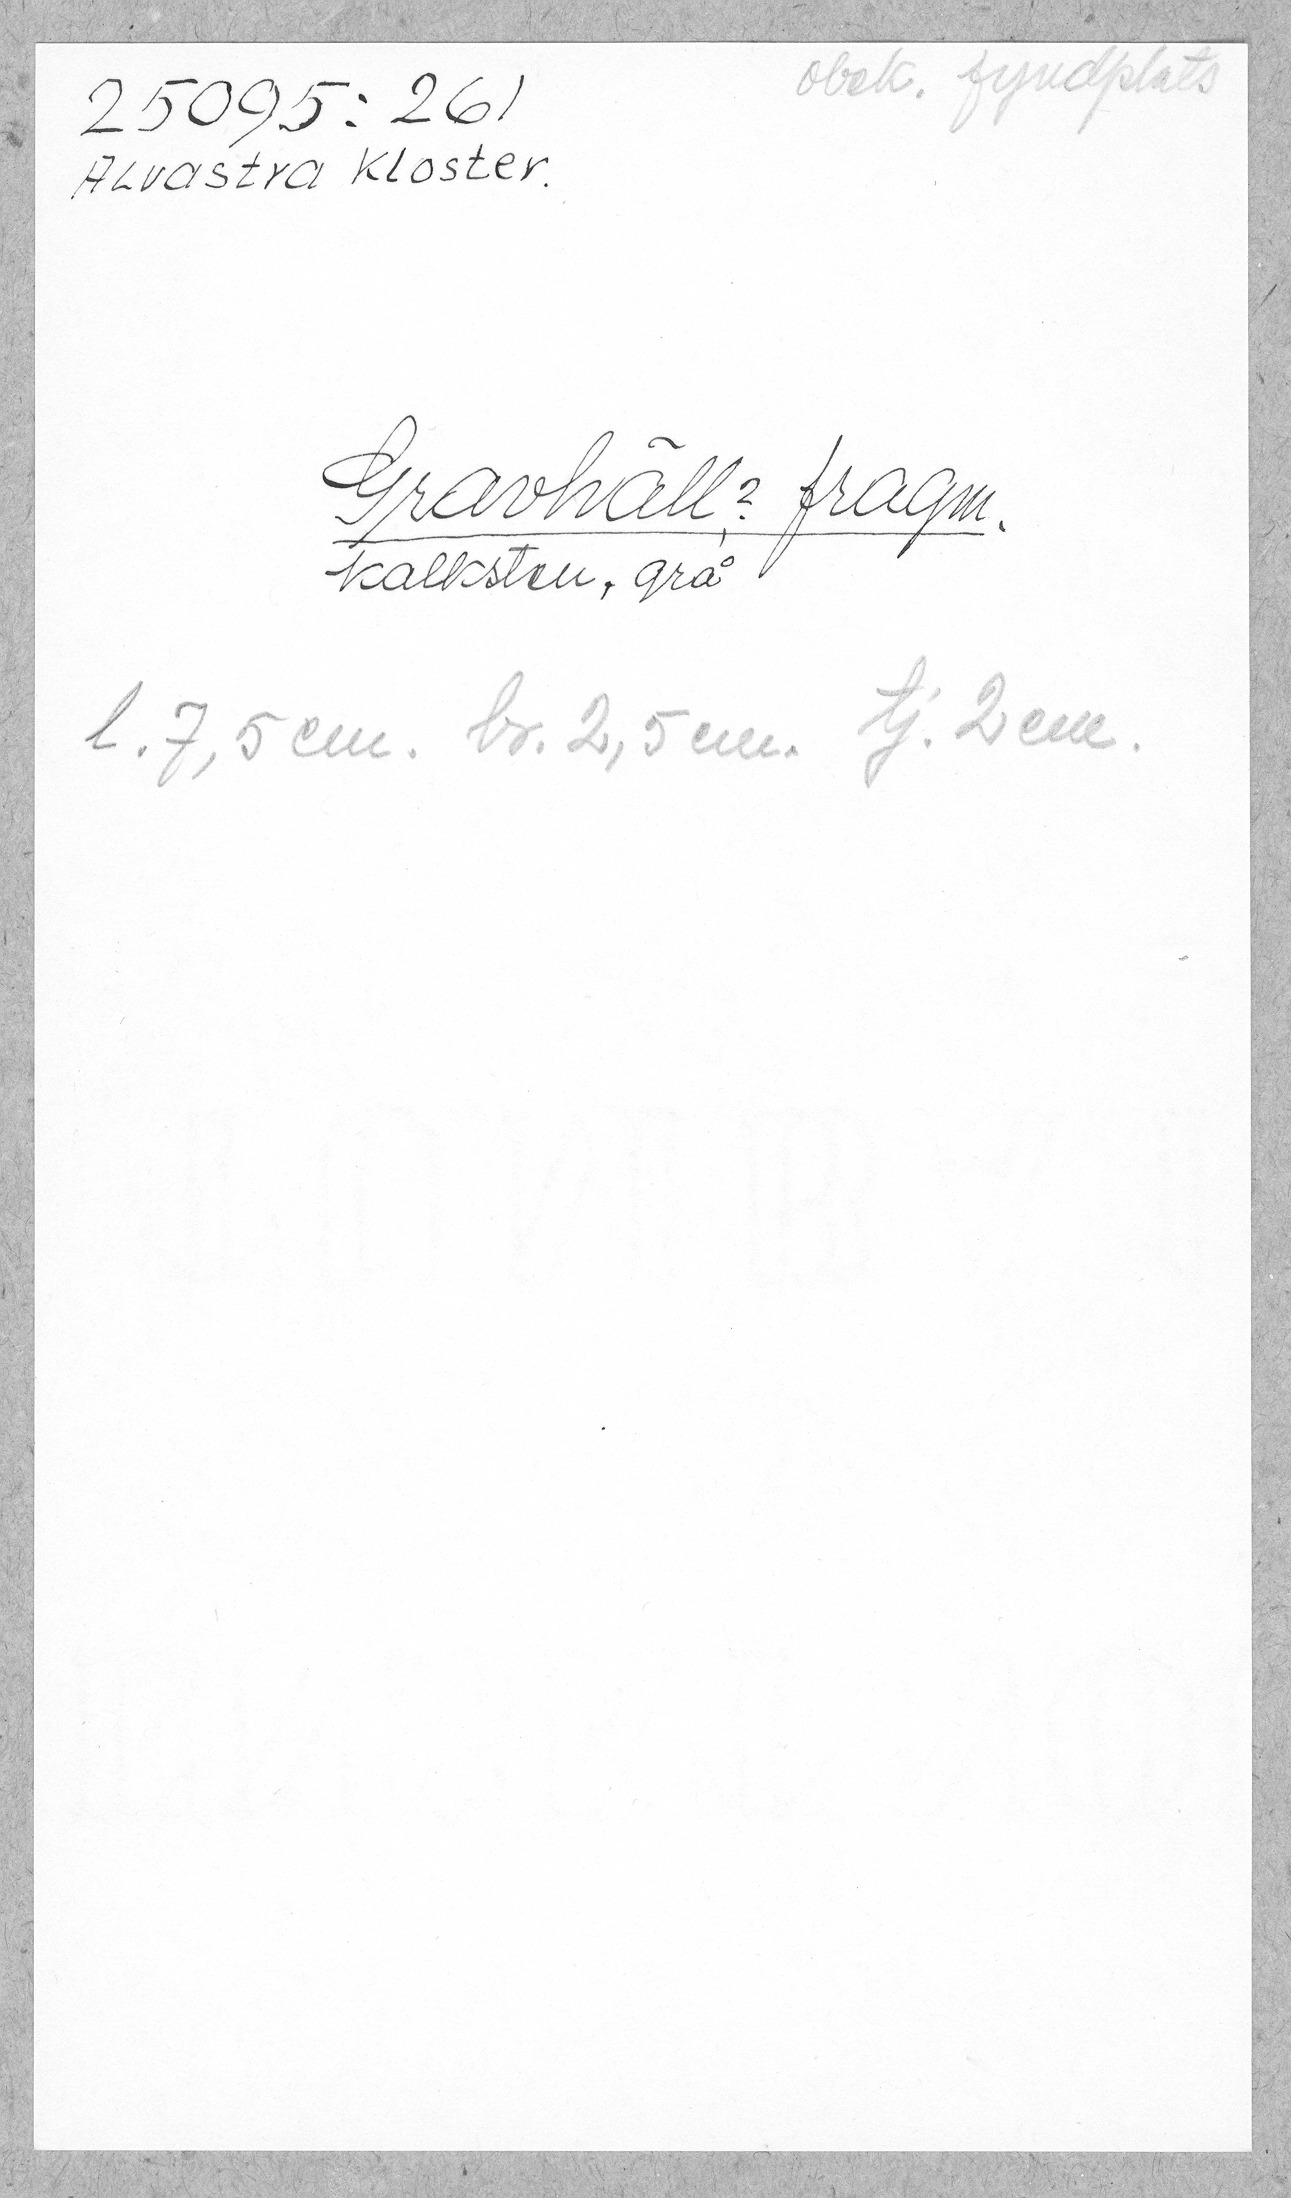 obek. fyndplats
25095:261
Alvastra Kloster.
Gravhäll? fragm.
kalksten, grå
l. 7,5 cm. br. 2,5 cm. tj. 2 cm.